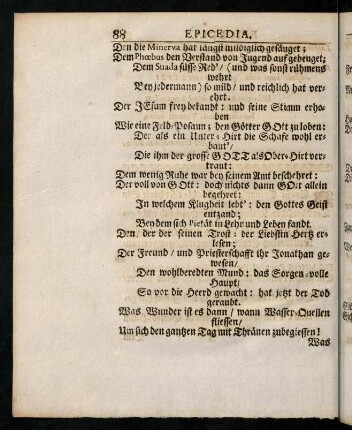 88 EPICEDIA,
Den die Minerva hat längst mildiglich gesäuget;
Dem Phœbus den Verstand von Jugend auf gebeuget;
Dem Suada süsse Red' / (und was sonst rühmens
wehrt
Bey jedermann) so mild / und reichlich hat ver-
ehrt.
Der JEsam frey bekandt: und seine Stimm erho-
ben
Wie eine Feld-Posaun: den Götter GOtt zu loben:
Der als ein Unter-Hirt die Schafe wohl er-
baut' /
Die ihm der grosse GOTT als Ober-Hirt ver-
traut:
Dem wenig Ruhe war bey seinem Amt beschehret:
Der voll von GOtt: doch nichts dann GOtt allein
begehret:
In welchem Klugheit lebt': den Gottes Geist
entzand;
Bey dem sich Pietät in Lehr und Leben fandt.
Den / der der seinen Trost: der Liebsten Hertz er-
lesen;
Der Freund / und Priesterschafft ihr Jonathan ge-
wesen /
Den wohlberedten Mund: das Sorgen-volle
Haupt /
So vor die Heerd gewacht: hat jetzt der Tod
geraubt.
Was Wunder ist es dann / wann Wasser-Quellen
fliessen /
Um sich den gantzen Tag mit Thränen zubegiessen!
Was